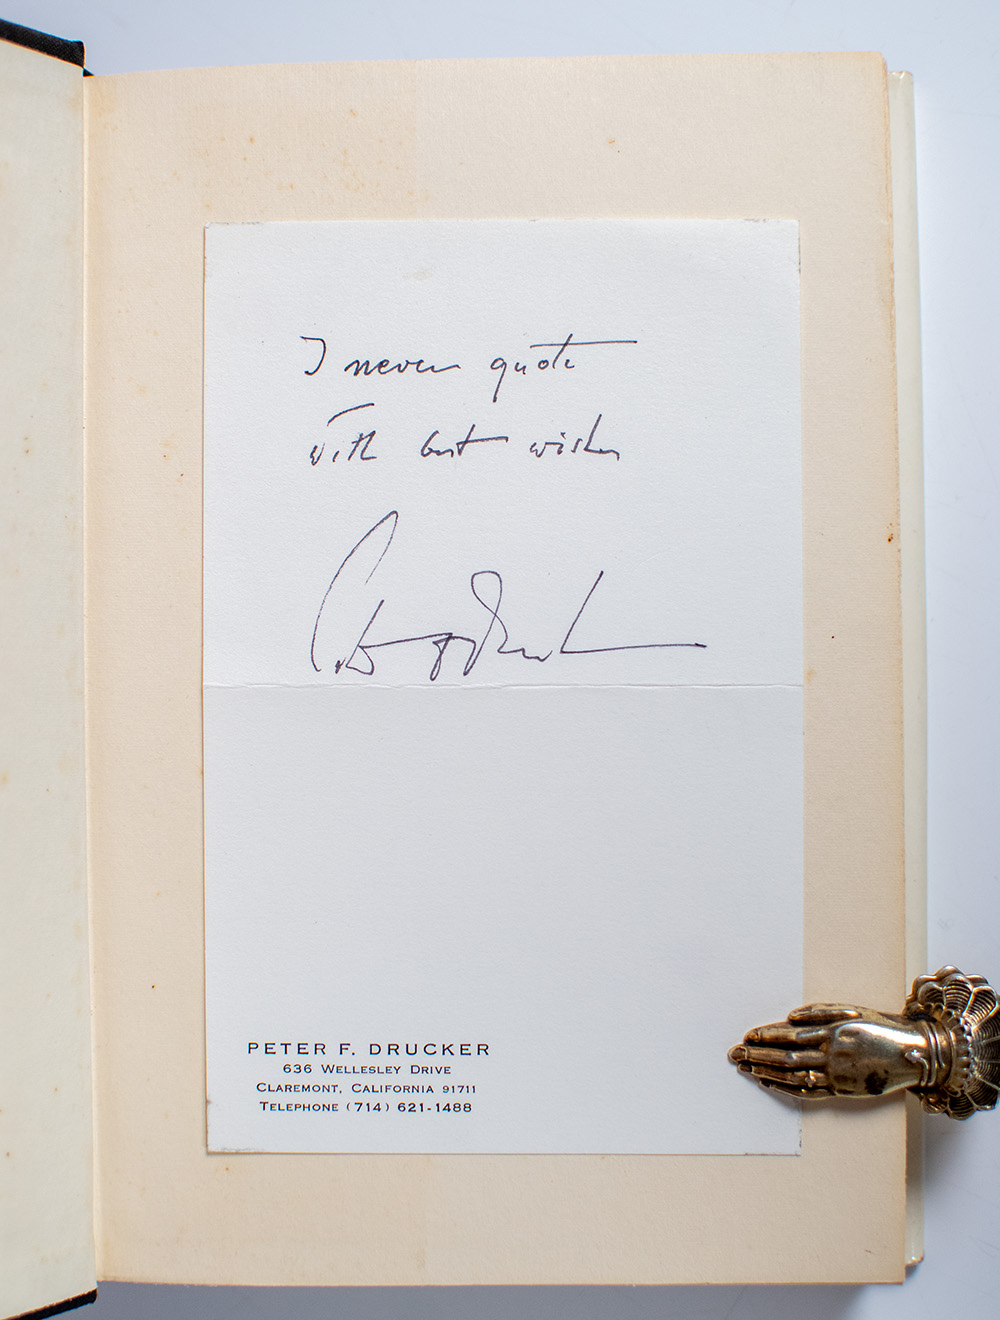 I never quote
with best wishes
Peter F. Drucker
PETER F. DRUCKER
636 WELLESLEY DRIVE
CLAREMONT, CALIFORNIA 91711
TELEPHONE (714) 621-1488